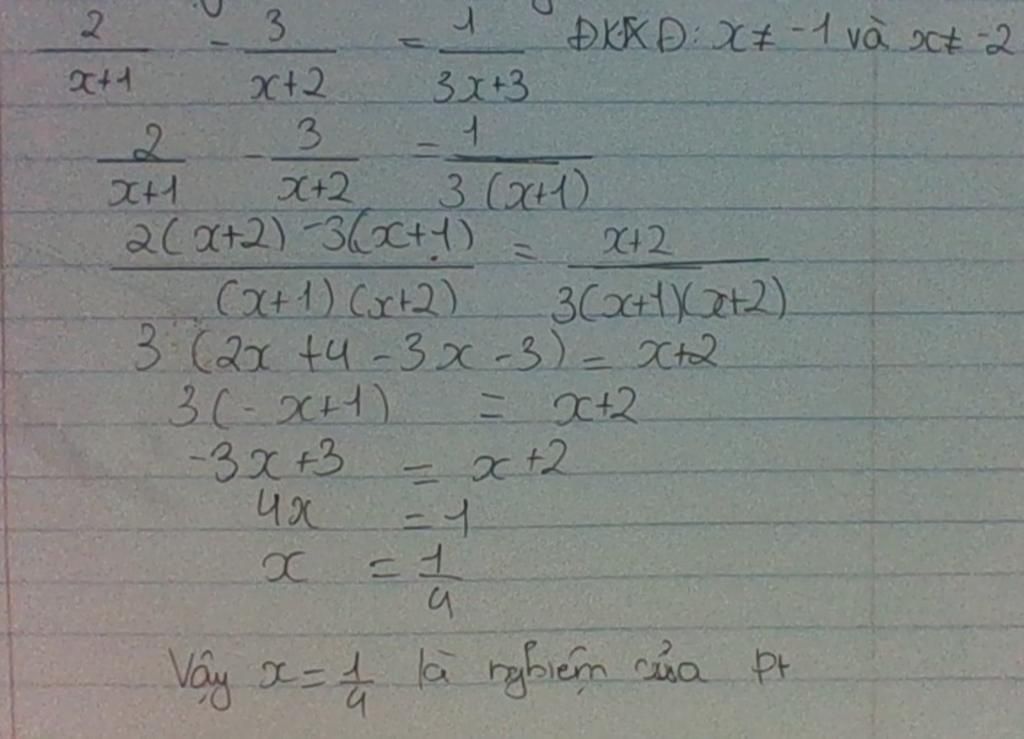 2/(x+1) - 3/(x+2) = 1/(3x+3) ĐKXĐ: x ≠ -1 và x ≠ -2
2/(x+1) - 3/(x+2) = 1/(3(x+1))
(2(x+2) - 3(x+1))/((x+1)(x+2)) = (x+2)/(3(x+1)(x+2))
3(2x + 4 - 3x - 3) = x+2
3(-x+1) = x+2
-3x+3 = x+2
4x = 1
x = 1/4
Vậy x = 1/4 là nghiệm của pt